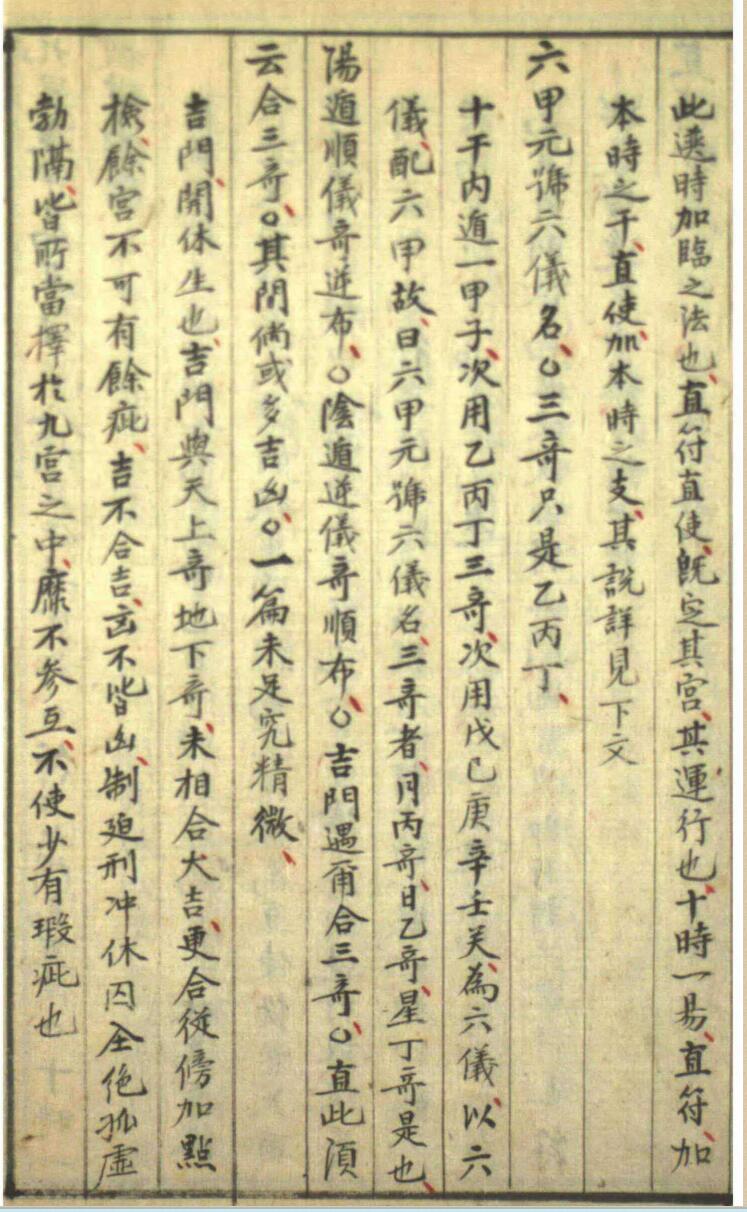 此逐時加臨之法也、直符直使、旣定其宮、其運行也、十時一易、直符、加
本時之干、直使、加本時之支、其說詳見下文
六甲元號六儀名、○三竒只是乙丙丁、
十干內遁一甲子、次用乙丙丁三竒、次用戊己庚辛壬癸、為六儀、以六
儀、配六甲故、曰六甲元號六儀名、三竒者、月丙竒、日乙竒、星丁竒是也、
陽遁順儀竒逆布、○陰遁逆儀竒順布、○吉門遇甭合三竒、○直此湏
云合三竒、○其間倘或多吉凶、○一篇未足究精微、
吉門、開休生也、吉門與天上竒地下竒、未相合大吉、更合從傍加點
檢、餘宮不可有餘疵、吉不合吉、凶不皆凶、制廹刑冲休囚全絶孤虛
勃隔、皆所當擇於九宮之中、靡不參互、不使少有瑕疵也